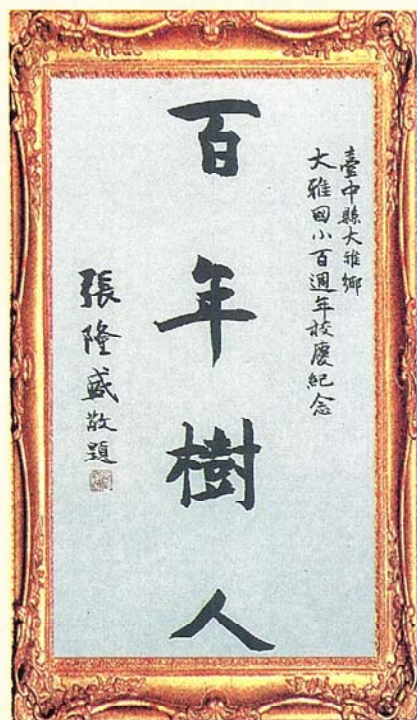 臺中縣大雅鄉
大雅國小百週年校慶紀念
百年樹人
張隆盛敬題